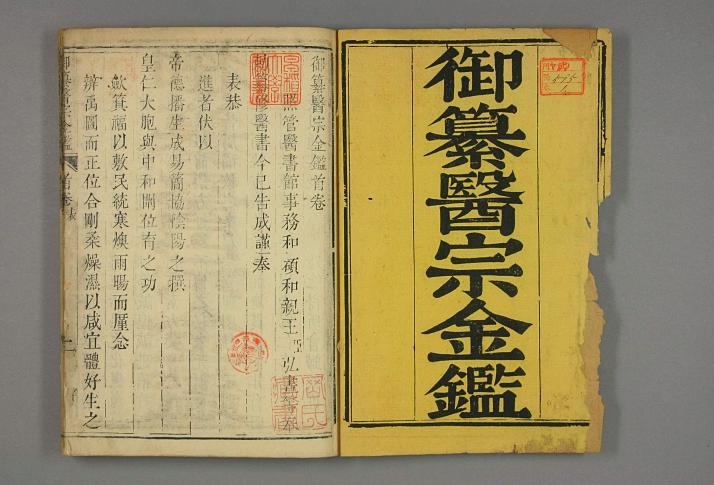 御纂醫宗金鑑
御纂醫宗金鑑首卷
照管醫書館事務和碩和親王臣弘晝等奉
勅纂修醫書今已告成謹奉
表恭
進者伏以
帝德播生成易簡協陰陽之撰
皇仁大胞與中和闡位育之功
歛箕福以敷民統寒燠雨暘而厪念
辨禹圖而正位合剛柔燥濕以咸宜體好生之
御纂醫宗金鑑
首卷表
一